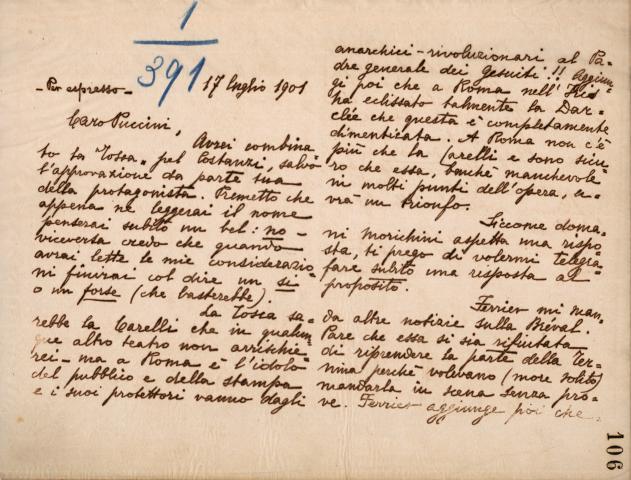 1
391
- Per espresso -
17 luglio 1901
Caro Puccini,
Avrei combina=
to la Tosca, pel Costanzi, salvo
l'approvazione da parte tua
della protagonista. Premetto che
appena ne leggerai il nome
penserai subito un bel: no -
viceversa credo che quando
avrai lette le mie considerazio
ni finirai col dire un si
o un forse (che basterebbe).
La Tosca sa=
rebbe la Carelli che in qualun
que altro teatro non arrischie
rei - ma a Roma è l'idolo
del pubblico e della stampa
e i suoi protettori vanno dagli
anarchici - rivoluzionari al Pa=
dre generale dei Gesuiti!! Aggiun
gi poi che a Roma nell'Iris
ha eclissato talmente la Dar=
clée che questa è completamente
dimenticata. A Roma non c'è
più che la Carelli e sono sicu
ro che essa, benchè manchevole
in molti punti dell'opera, a=
vrà un trionfo.
Siccome doma=
ni Morichini aspetta una rispo
sta, ti prego di volermi telegra=
fare subito una risposta al
proposito.
Ferrier mi man=
da altre notizie sulla Bréval.
Pare che essa si sia rifiutata
di riprendere la parte della Ter=
nina perchè volevano (more solito)
mandarla in scena senza pro=
ve. Ferrier aggiunge poi che
106